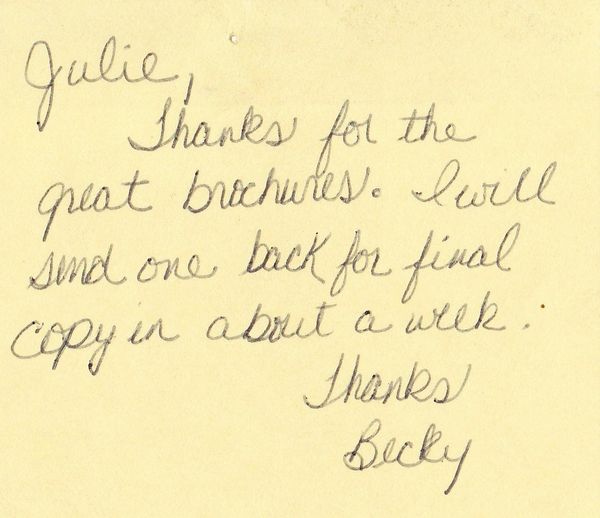 Julie,
Thanks for the
great brochures. I will
send one back for final
copy in about a week.
Thanks
Becky